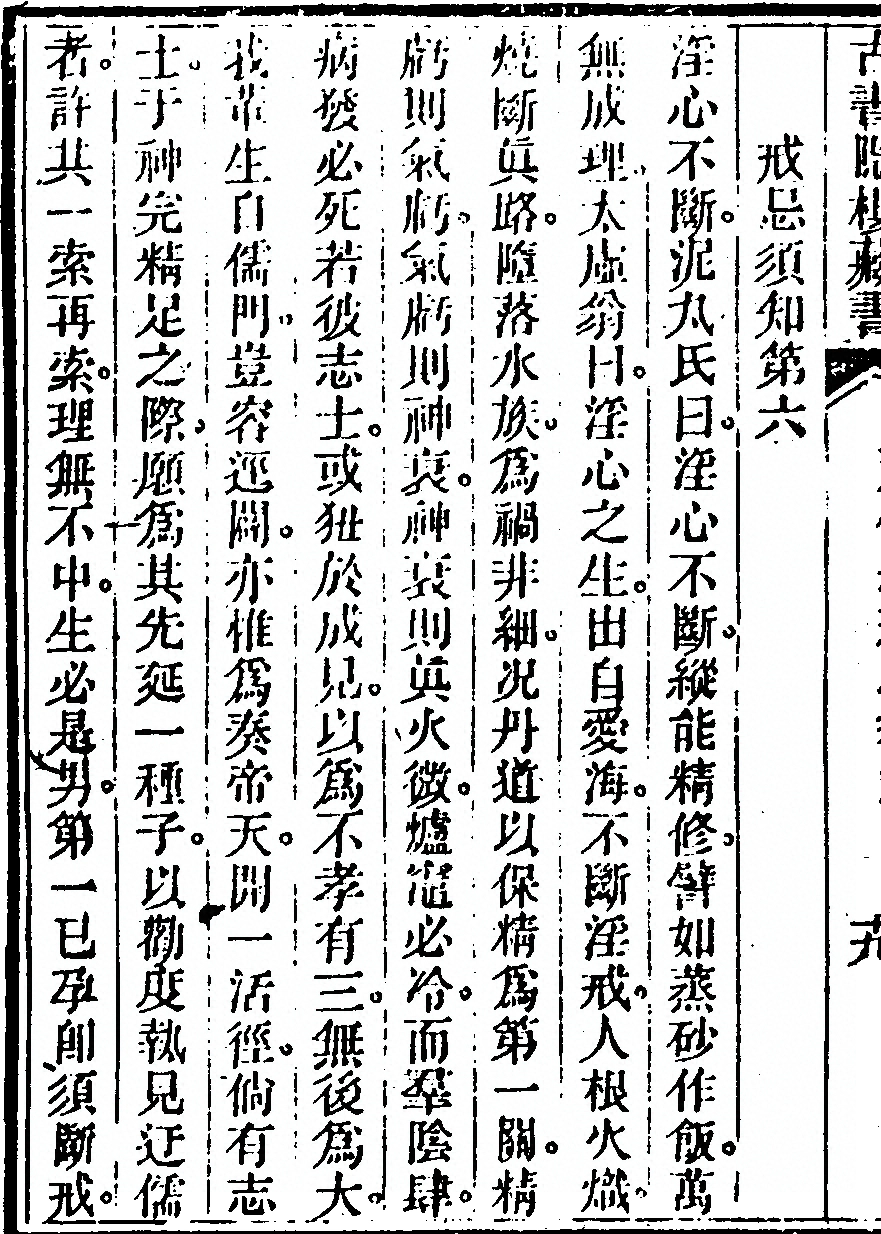 古書隱樓藏書
九
戒忌須知第六
淫心不斷。泥丸氏曰。淫心不斷。縱能精修。譬如蒸砂作飯。萬
無成理。太虛翁曰。淫心之生。出自愛海。不斷淫戒。人根火熾。
燒斷眞路。墮落水族。爲禍非細。况丹道以保精爲第一關。精
虧則氣虧。氣虧則神衰。神衰則眞火微。爐竈必冷。而羣陰肆。
病發必死若彼志士。或狃於成見。以爲不孝有三。無後爲大。
我輩生自儒門。豈容逕關。亦惟爲奏帝天。開一活徑。倘有志
士。于神完精足之際。願爲其先延一種子。以勸度執見迂儒
者。許其一索再索。理無不中。生必是男。第一已孕卽須斷戒。